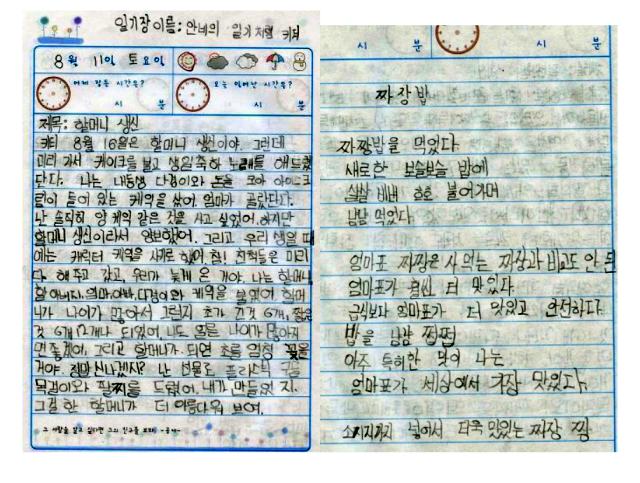 일기장이름: 안네의 일기처럼 키티
8월 11일 토요일
어제 잠든 시간은?
오늘 일어난 시간은?
시 분
시 분
제목: 할머니 생신
키티 8월 16일은 할머니 생신이야. 그런데
미리 가서 케이크를 불고 생일축하 노래를 해드렸
단다. 나는 내동생 다경이와 돈을 모아 아이스크
림이 들어 있는 케익을 샀어. 엄마가 골랐단다.
난 솔직히 양 케익 같은 것을 사고 싶었어. 하지만
할머니 생신이라서 양보했어. 그리고 우리 생일 때
에는 캐릭터 케익을 사기로 했어. 참, 친척들은 미리
다 해 주고 갔고, 우리가 늦게 온 거야. 나는 할머니,
할아버지, 엄마, 아빠, 다경이와 케익을 불었어. 할머
니가 나이가 많아서 그런지 초가 긴것 6개, 짧은
것 6개나 되었어. 너도 얼른 나이가 많아지
면 좋겠어. 그리고 할머니가 되면 초를 엄청 꽂을
거야. 정말 신나겠지? 난 선물로 플라스틱 구슬
목걸이와 팔찌를 드렸어. 내가 만들었지.
그걸 한 할머니가 더 아름다워 보여.
그 사람을 알고 싶다면 그의 친구를 보라
시 분
시 분
짜장밥
짜짱밥을 먹었다
새로한 보슬보슬 밥에
살살 비벼 호호 불어가며
냠냠 먹었다
엄마표 짜장은 사 먹는 짜장과 비교도 안 된
엄마표가 훨씬 더 맛있다
급식보다 엄마표가 더 맛있고 안전하다
밥을 냠냠 쩝쩝
아주 특허한 맛이 나는
엄마표가 세상에서 가장 맛있다
소시지까지 넣어서 더욱 맛있는 짜장 짱